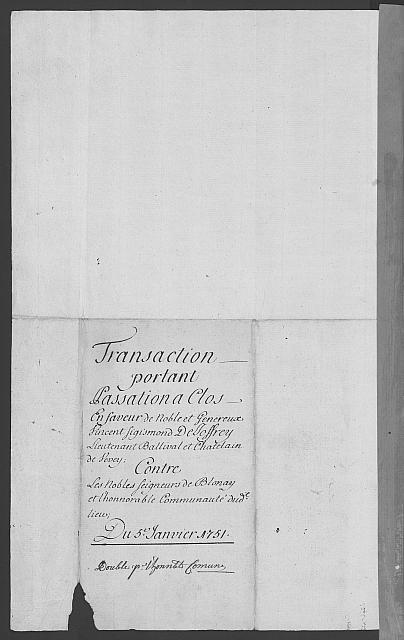 Transaction
portant
Passation a Clos
En faveur de Noble et Genereux
Vincent Sigismond De Joffrey
Lieutenant Ballival et Chatelain
de Vevey;
Contre
Les Nobles Seigneurs de Blonay
et l'honnorable Communauté dud.t
lieu;
Du 5.e Janvier 1751.
Double p.r l'honnble Comune